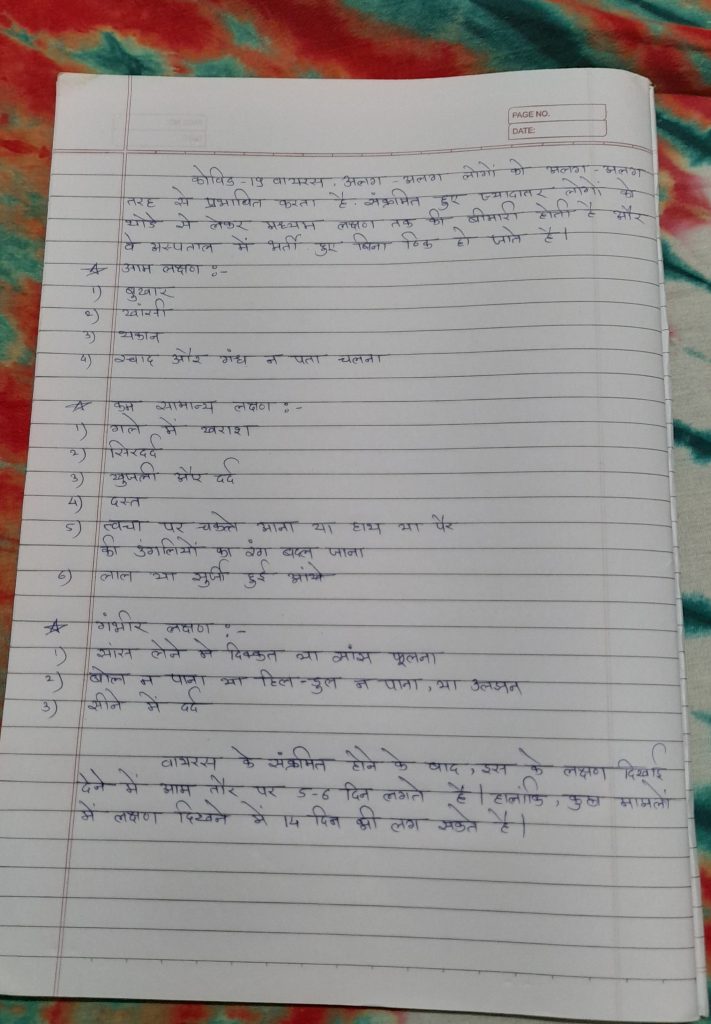 PAGE NO.
DATE:
कोविड -19 वायरस, अलग -अलग लोगों को अलग -अलग
तरह से प्रभावित करता है. संक्रमित हुए ज्यादातर लोगों को
थोडे से लेकर मध्यम लक्षण तक की बीमारी होती है और
वे अस्पताल में भर्ती हुए बिना ठिक हो जाते है।
☆ आम लक्षण :-
1) बुखार
2) खांसी
3) थकान
4) स्वाद और गंध न पता चलना
☆ कम सामान्य लक्षण :-
1) गले में खराश
2) सिरदर्द
3) खुजली और दर्द
4) दस्त
5) त्वचा पर चकत्ते आना या हाथ या पैर
की उंगलियों का रंग बदल जाना
6) लाल या सुजी हुई आंखे
☆ गंभीर लक्षण :-
1) सांस लेने मे दिक्कत या सांस फूलना
2) बोल न पाना या हिल-डुल न पाना, या उलझन
3) सीने में दर्द
वायरस के संक्रमित होने के बाद, इस के लक्षण दिखाई
देने में आम तौर पर 5-6 दिन लगते है। हालांकि, कुछ मामलों
में लक्षण दिखने में 14 दिन भी लग सकते है।